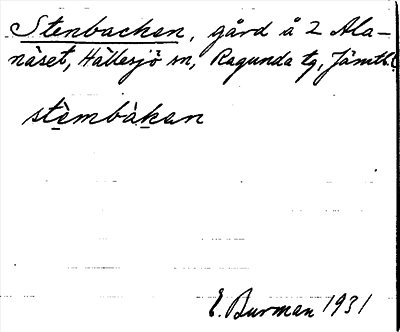 Stenbacken, gård å 2 Ala-
näset, Hällesjö sn, Ragunda tg, Jämtl.
stèmbàkan
E. Burman 1931